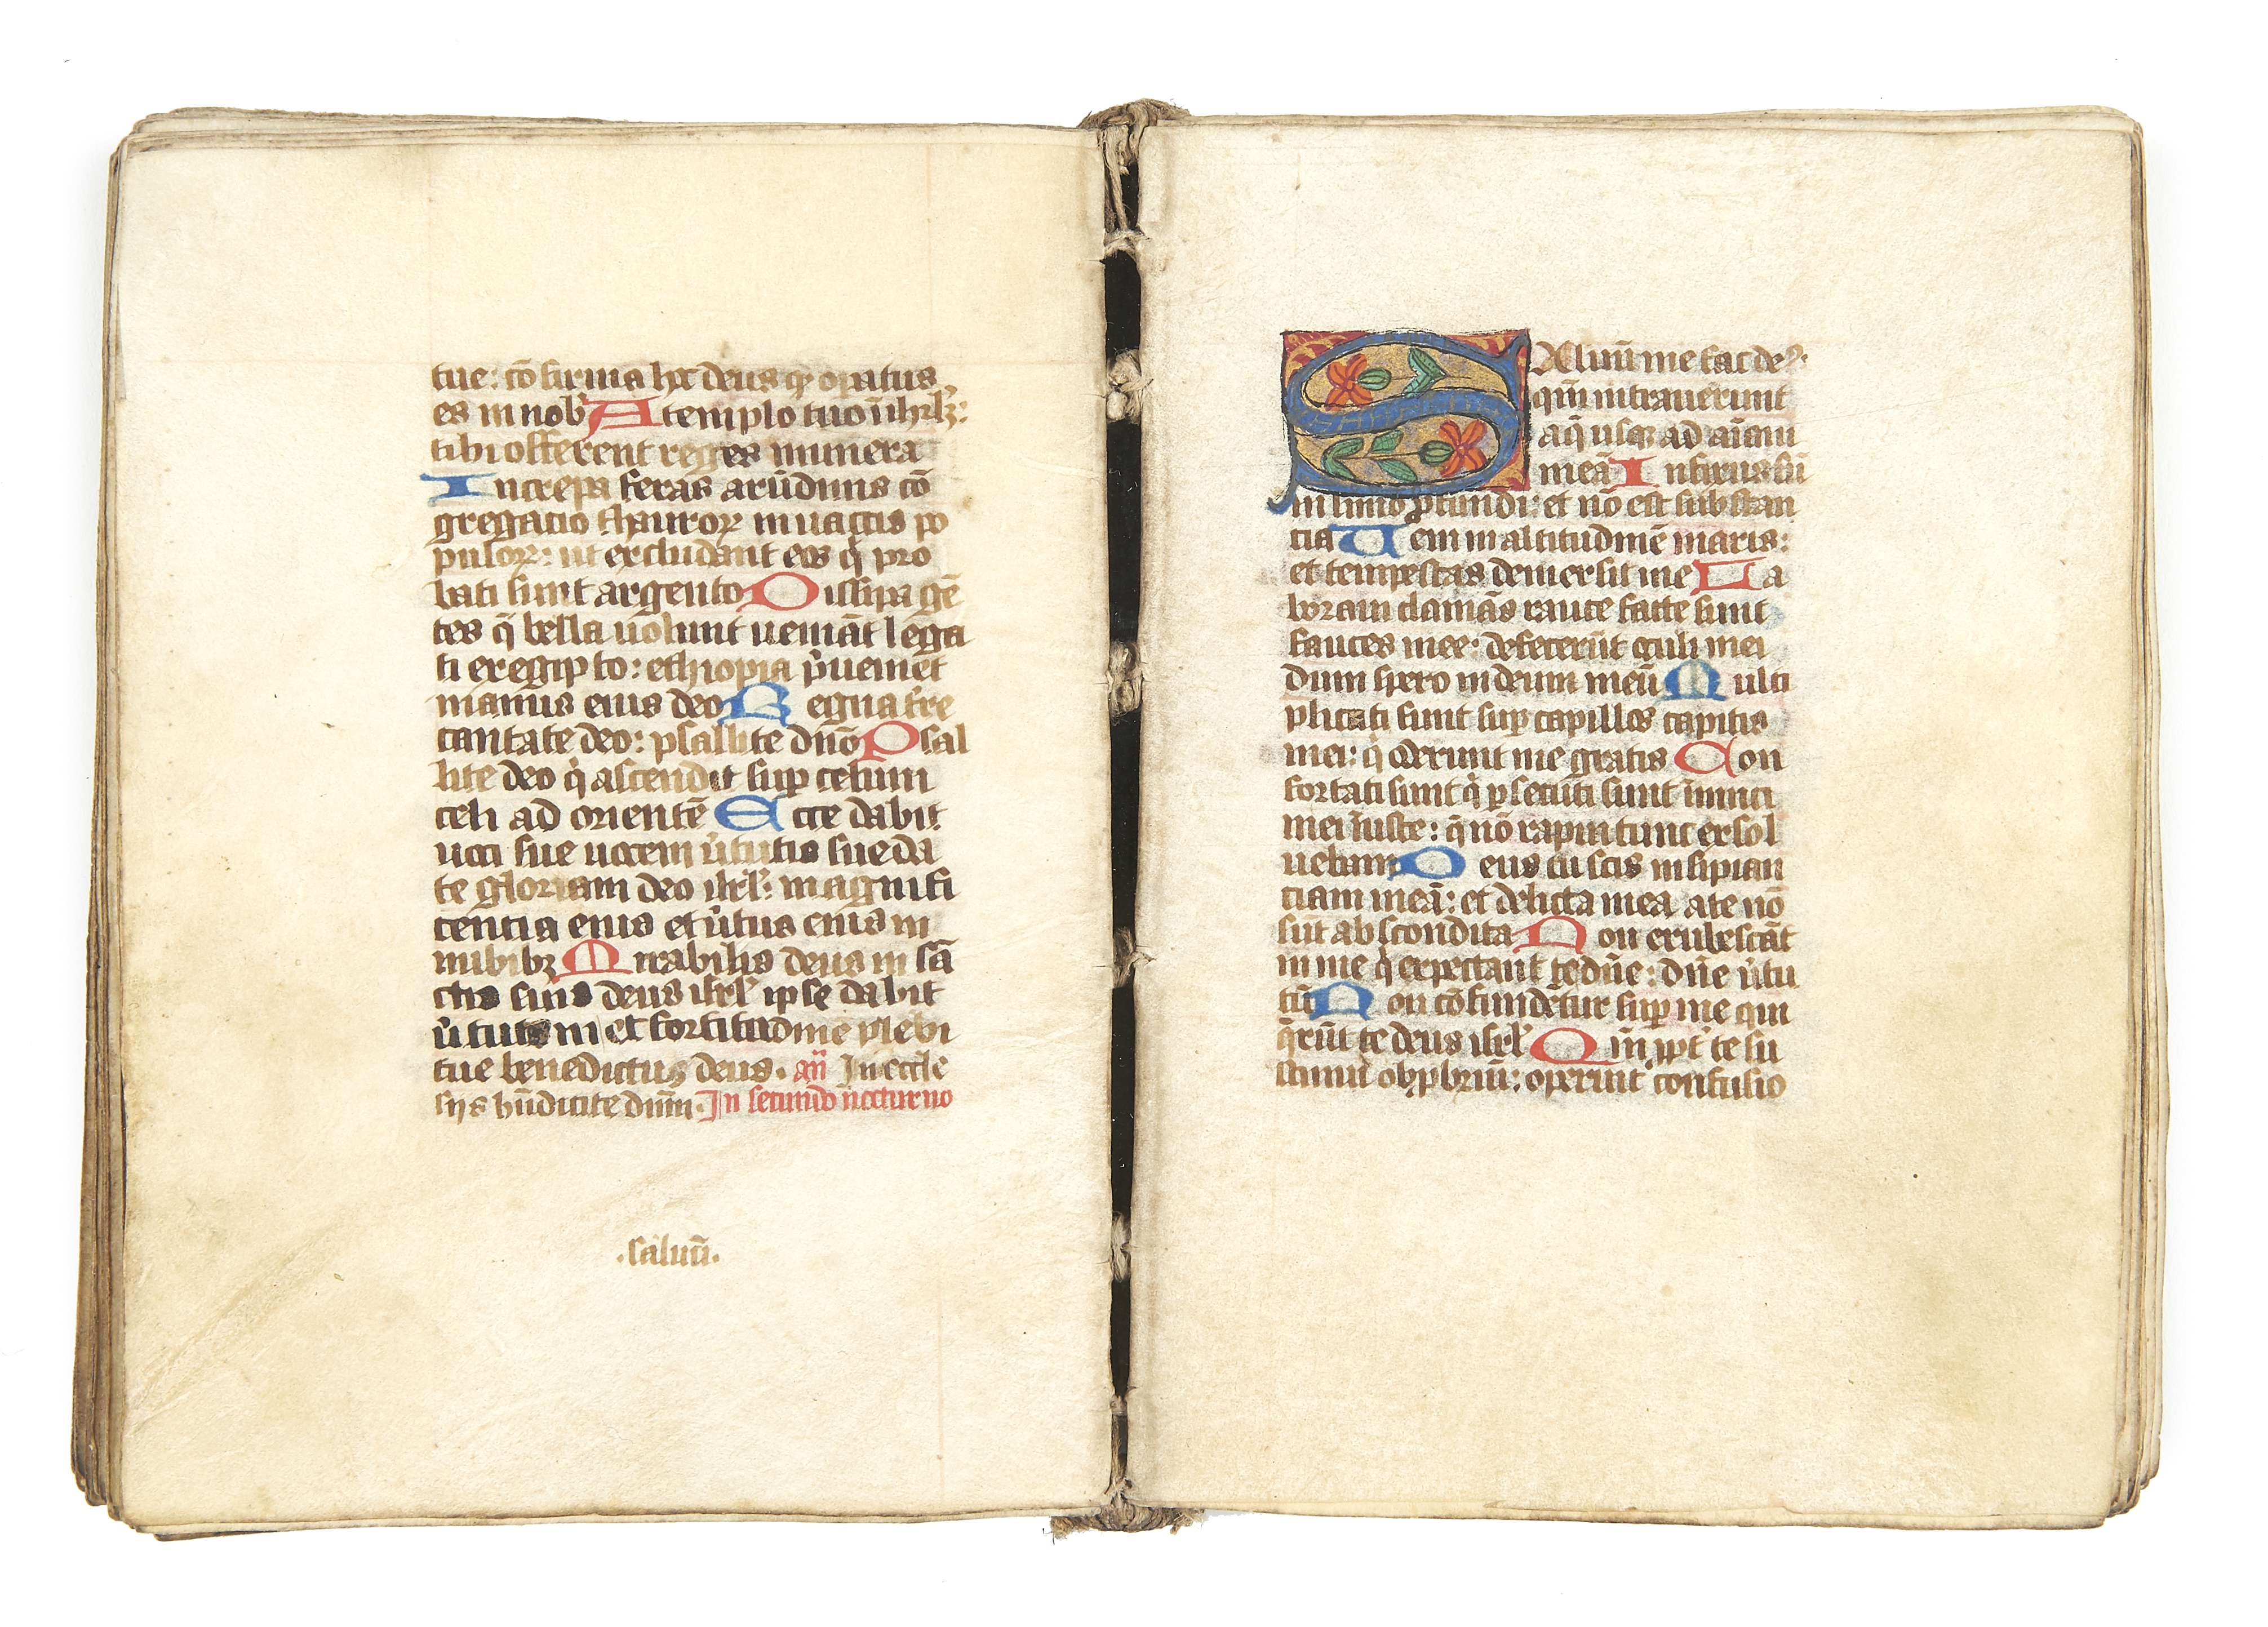 tue: cõfirma hoc deus qȝ opatus
es in nobˀ A templo tuo ī ihrlꝫ:
tibi offerent reges munera
Increpa feras arūdinis cō
gregatio thauroꝝ in uaccis po
puloꝝ: ut excludant eos q̇ pro
bati sunt argento Dissipa gē
tes q̄ bella uolunt ueniāt lega
ti ex egipto: ethiopia p̄ueniet
manus eius deo Regna tr̄e
cantate deo: psallite dn̄o Psal
lite deo q̇ ascendit sup̱ celum
celi ad orientē Ecce dabit
uoci sue uocem u̇tutis sue da
te gloriam deo isrl̄: magnifi
centia eius et u̇tus eius in
nubibꝫ Mirabilis deus in sā
ctis suis deus isrl̄ ipse dabit
u̇tutem et fortitudine plebi
sue benedictus deus. an̄ In eccle
sijs bn̄dicite dn̄m. In secundo nocturno
.saluū.
SAluū me fac deꝰ
qm̄ intrauerunt
aq̄ usqȝ ad aīam
meā Infixus sū
in limo ꝓfundi: et nō est substan
tia Ueni in altitudinē maris:
et tempestas demersit me La
boraui clamās rauce facte sunt
fauces mee: defecerūt oculi mei
dum spero in deum meū Multi
plicati sunt sup̱ capillos capitis
mei: q̇ oderunt me gratis Con
fortati sunt q̇ p̱secuti sunt inimici
mei iniuste: q̄ nō rapui tunc exsol
uebam Deus tu scis insipien
tiam meā: et delicta mea a te nō
sūt abscondita Non erubescāt
in me q̇ expectant te dn̄e: dn̄e u̇tu
tū Non cōfundētur sup̱ me qui
q̄rūt te deus isrl̄ Qm̄ ꝓpt̄ te su
stinui obꝓbriū: operuit confusio